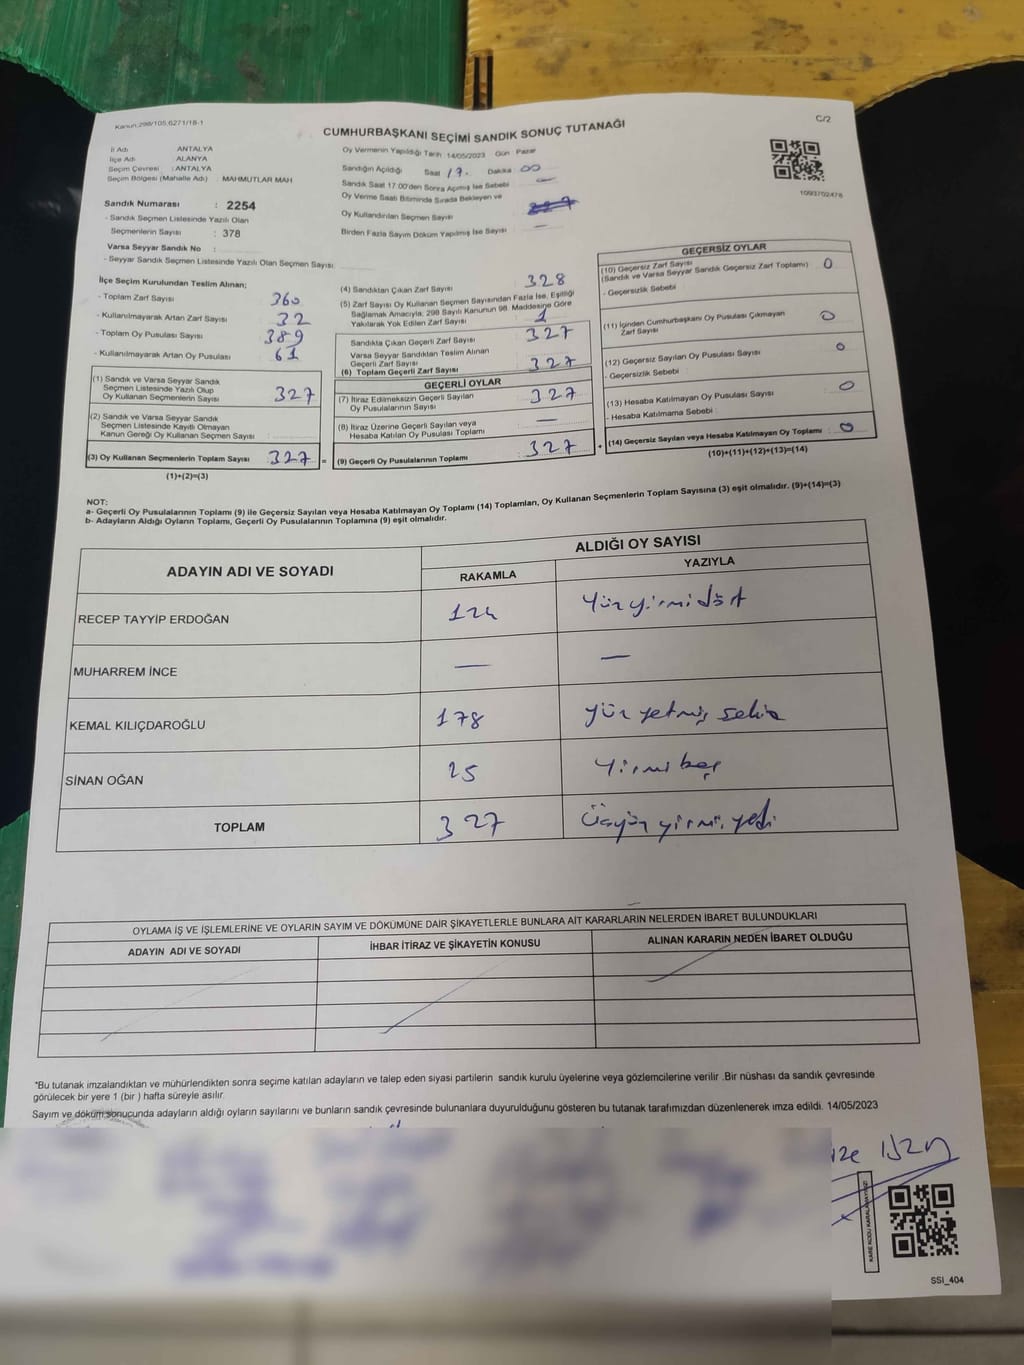 Kanun:298/105,6271/18-1
CUMHURBAŞKANI SEÇİMİ SANDIK SONUÇ TUTANAĞI
C/2
İl Adı : ANTALYA
İlçe Adı : ALANYA
Seçim Çevresi : ANTALYA
Seçim Bölgesi (Mahalle Adı) : MAHMUTLAR MAH
Sandık Numarası : 2254
- Sandık Seçmen Listesinde Yazılı Olan
Seçmenlerin Sayısı : 378
Varsa Seyyar Sandık No :
- Seyyar Sandık Seçmen Listesinde Yazılı Olan Seçmen Sayısı
Oy Vermenin Yapıldığı Tarih :14/05/2023 Gün : Pazar
Sandığın Açıldığı Saat 17. Dakika 00
Sandık Saat 17.00'den Sonra Açılmış İse Sebebi —
Oy Verme Saati Bitiminde Sırada Bekleyen ve
Oy Kullandırılan Seçmen Sayısı
Birden Fazla Sayım Döküm Yapılmış İse Sayısı —
1093702476
İlçe Seçim Kurulundan Teslim Alınan;
- Toplam Zarf Sayısı 360
- Kullanılmayarak Artan Zarf Sayısı 32
- Toplam Oy Pusulası Sayısı 389
- Kullanılmayarak Artan Oy Pusulası 61
(1) Sandık ve Varsa Seyyar Sandık
Seçmen Listesinde Yazılı Olup
Oy Kullanan Seçmenlerin Sayısı 327
(2) Sandık ve Varsa Seyyar Sandık
Seçmen Listesinde Kayıtlı Olmayan
Kanun Gereği Oy Kullanan Seçmen Sayısı
(3) Oy Kullanan Seçmenlerin Toplam Sayısı 327 =
(1)+(2)=(3)
(4) Sandıktan Çıkan Zarf Sayısı 328
(5) Zarf Sayısı Oy Kullanan Seçmen Sayısından Fazla İse, Eşitliği
Sağlamak Amacıyla, 298 Sayılı Kanunun 98. Maddesine Göre
Yakılarak Yok Edilen Zarf Sayısı 1
Sandıkla Çıkan Geçerli Zarf Sayısı 327
Varsa Seyyar Sandıktan Teslim Alınan
Geçerli Zarf Sayısı
(6) Toplam Geçerli Zarf Sayısı 327
GEÇERLİ OYLAR
(7) İtiraz Edilmeksizin Geçerli Sayılan
Oy Pusulalarının Sayısı 327
(8) İtiraz Üzerine Geçerli Sayılan veya
Hesaba Katılan Oy Pusulası Toplamı —
(9) Geçerli Oy Pusulalarının Toplamı 327 +
GEÇERSİZ OYLAR
(10) Geçersiz Zarf Sayısı
(Sandık ve Varsa Seyyar Sandık Geçersiz Zarf Toplamı) 0
- Geçersizlik Sebebi
(11) İçinden Cumhurbaşkanı Oy Pusulası Çıkmayan
Zarf Sayısı 0
(12) Geçersiz Sayılan Oy Pusulası Sayısı 0
- Geçersizlik Sebebi :
(13) Hesaba Katılmayan Oy Pusulası Sayısı 0
- Hesaba Katılmama Sebebi :
(14) Geçersiz Sayılan veya Hesaba Katılmayan Oy Toplamı : 0
(10)+(11)+(12)+(13)=(14)
NOT:
a- Geçerli Oy Pusulalarının Toplamı (9) ile Geçersiz Sayılan veya Hesaba Katılmayan Oy Toplamı (14) Toplamları, Oy Kullanan Seçmenlerin Toplam Sayısına (3) eşit olmalıdır. (9)+(14)=(3)
b- Adayların Aldığı Oyların Toplamı, Geçerli Oy Pusulalarının Toplamına (9) eşit olmalıdır.
ADAYIN ADI VE SOYADI
ALDIĞI OY SAYISI
RAKAMLA YAZIYLA
RECEP TAYYİP ERDOĞAN 124 Yüz yirmi dört
MUHARREM İNCE — —
KEMAL KILIÇDAROĞLU 178 yüz yetmiş sekiz
SİNAN OĞAN 25 Yirmi beş
TOPLAM 327 Üçyüz yirmi yedi
OYLAMA İŞ VE İŞLEMLERİNE VE OYLARIN SAYIM VE DÖKÜMÜNE DAİR ŞİKAYETLERLE BUNLARA AİT KARARLARIN NELERDEN İBARET BULUNDUKLARI
ADAYIN ADI VE SOYADI İHBAR İTİRAZ VE ŞİKAYETİN KONUSU ALINAN KARARIN NEDEN İBARET OLDUĞU
*Bu tutanak imzalandıktan ve mühürlendikten sonra seçime katılan adayların ve talep eden siyasi partilerin sandık kurulu üyelerine veya gözlemcilerine verilir .Bir nüshası da sandık çevresinde
görülecek bir yere 1 (bir ) hafta süreyle asılır.
Sayım ve döküm sonucunda adayların aldığı oyların sayılarını ve bunların sandık çevresinde bulunanlara duyurulduğunu gösteren bu tutanak tarafımızdan düzenlenerek imza edildi. 14/05/2023
KARE KODU KARALAMAYINIZ!
SSI_404